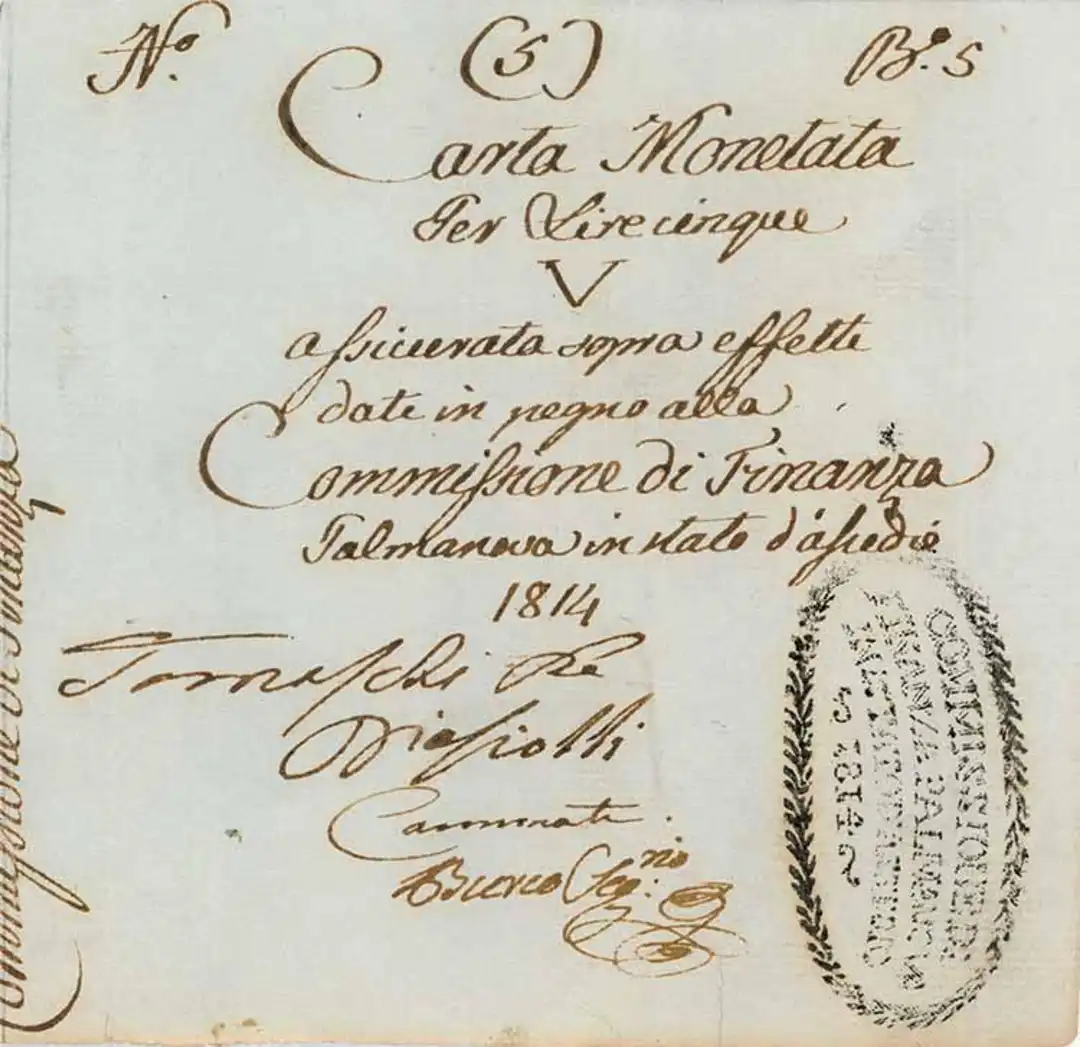 N.o (5) B.o 5
Carta Monetata
Per Lire cinque
V
assicurata sopra effetti
dati in pegno alla
Commissione di Finanza
Palmanova in stato d'assedio
1814
Commissione di Finanza
COMMISSIONE DI
FINANZA PALMANOVA
IN STATO D'ASSEDIO
1814